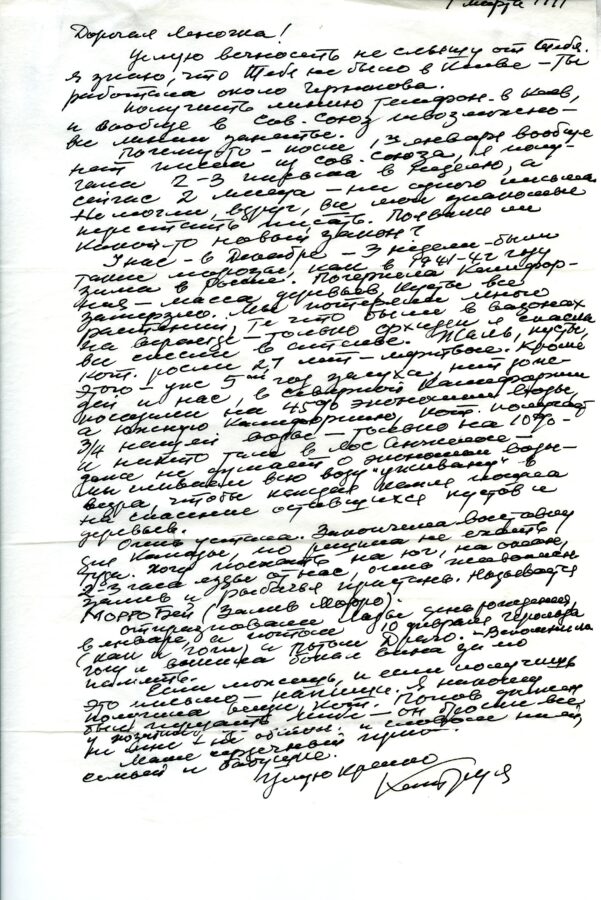 1 марта 1991
Дорогая Леночка!
Целую вечность не слышу от Тебя.
Я знаю, что Тебя не было в Киеве – Ты
работала около Чернигова.
Получить линию телефон. в Киев,
и вообще в Сов. Союз невозможно –
все линии заняты.
Почему-то – после 13 января вообще
нет писем из Сов. Союза, я полу-
чала 2–3 письма в неделю, а
сейчас 2 месяца – ни одного письма
Не могли, вдруг, все мои знакомые
перестать писать. Появился ли
какой-то новый закон?
У нас – в Декабре – 3 недели – были
такие морозы, как в 1941–42 году
зима в России. Почернела Калифор-
ния – масса деревьев, кусты все
замерзло. Мы потеряли много
растений, те что были в вазонах
на веранде – только орхидеи я спасла
все снесли в ателье. Жаль, кусты,
кот. росли 27 лет – мертвые. Кроме
этого – уже 5-ый год засуха, нет дож-
дей и нас, в северной Калифорнии
посадили на 45% экономии воды,
а южную Калифорнию, кот. получает
3/4 нашей воды – только на 10% –
и никто там в Лос Анжелесе –
даже не думает о экономии воды –
мы сливаем всю воду "уживаную" в
ведра, чтобы каждая капля пошла
на спасение оставшихся кустов и
деревьев.
Очень устала. Закончила выставку
для Канады, но решила не ехать
туда. Хочу поехать на юг, на океан,
2–3 часа езды от нас, очень живописн.
залив и рыбачья пристань. Называется
Морро Бей (Залив Морро).
Отпраздновали мой день рождения,
в январе, а потом 10 февраля
(как и Гоги) и потом
Гогу и выпила бокал вина за по
память.
Если можешь, и если получишь
это письмо – напиши. Я
вещи, кот. Попов должен
был передать Тебе – он бросил все
и
Маме сердечный привет.
семьей и бабушке.
Целую крепко